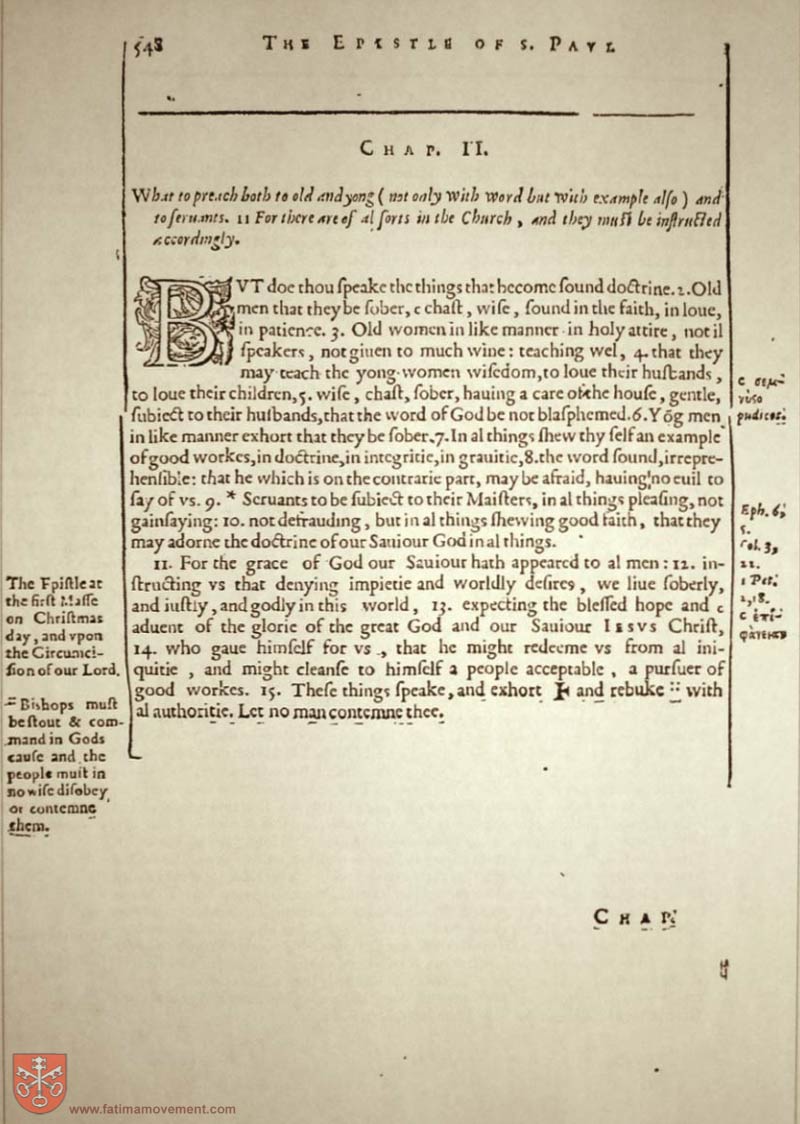 548 THE EPISTLE OF S. PAVL
CHAP. II.
What to preach both to old and yong ( not only with word but with example also ) and
to seruants. 11 For there are of al sorts in the Church , and they must be instructed
accordingly.
BVT doe thou ſpeake the things that become ſound doctrine. 2. Old
men that they be ſober, c chaſt , wiſe , ſound in the faith, in loue,
in patience. 3. Old women in like manner in holy attire, not il
ſpeakers , not giuen to much wine : teaching wel, 4. that they
may teach the yong women wiſedom, to loue their huſbands ,
to loue their children, 5. wiſe , chaſt, ſober, hauing a care of the houſe, gentle,
ſubiect to their huſbands, that the word of God be not blaſphemed. 6. Yõg men
in like manner exhort that they be ſober. 7. In al things ſhew thy ſelf an example
of good workes, in doctrine, in integritie, in grauitie, 8. the word ſound, irrepre-
henſible: that he which is on the contrarie part, may be afraid, hauing no euil to
ſay of vs. 9. * Seruants to be ſubiect to their Maiſters, in al things pleaſing, not
gainſaying: 10. not defrauding , but in al things ſhewing good faith , that they
may adorne the doctrine of our Sauiour God in al things.
11. For the grace of God our Sauiour hath appeared to al men : 12. in-
ſtructing vs that denying impietie and worldly deſires , we liue ſoberly,
and iuſtly, and godly in this world , 13. expecting the bleſſed hope and c
aduent of the glorie of the great God and our Sauiour IESVS Chriſt,
14. who gaue himſelf for vs , that he might redeeme vs from al ini-
quitie , and might cleanſe to himſelf a people acceptable , a purſuer of
good workes. 15. Theſe things ſpeake, and exhort and rebuke :: with
al authoritie. Let no man contemne thee.
The Epiſtle at
the firſt Maſſe
on Chriſtmas
day, and vpon
the Circumci-
ſion of our Lord.
:: Bishops muſt
be ſtout & com-
mand in Gods
cauſe and the
people muſt in
no wiſe diſobey
or contemne
them.
c σεμ-
νὺσ
pudicos.
Eph. 6,
5.
Col. 3,
22.
1 Pet.
2, 18.
c ἐπι-
φάνεια
CHAP.
www.fatimamovement.com